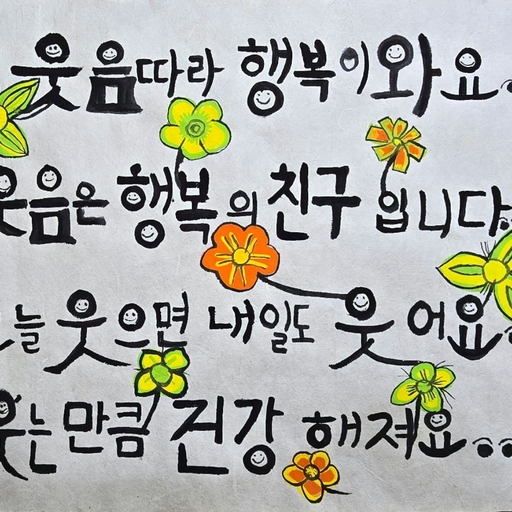 웃음따라 행복이와요..
웃음은 행복의 친구 입니다.
늘 웃으면 내일도 웃어요.
웃는만큼 건강해져요..